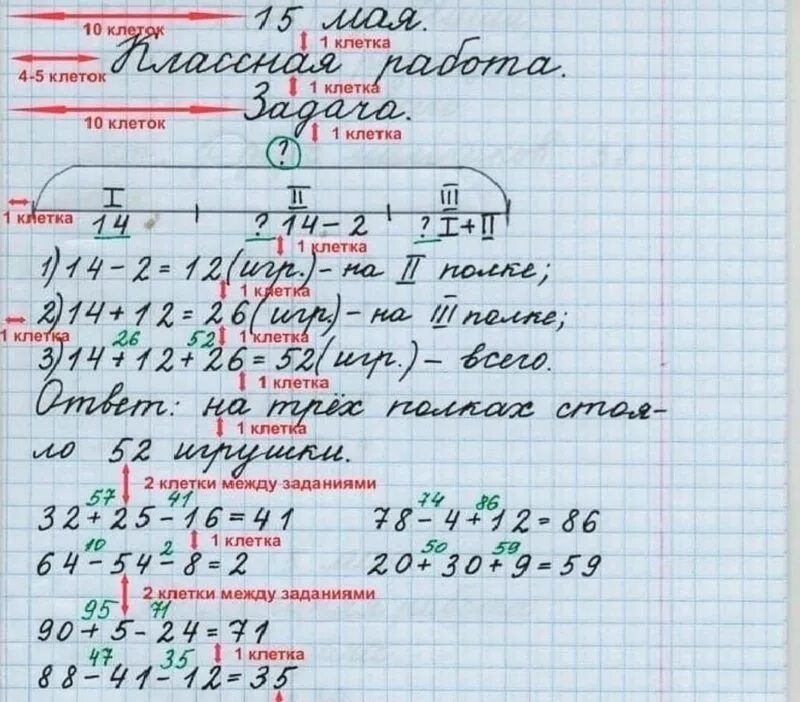 10 клеток 15 мая.
1 клетка
4-5 клеток Классная работа.
1 клетка
10 клеток Задача.
1 клетка
?
I II III
1 клетка 14 ? 14-2 ? I+II
1 клетка
1) 14-2=12(игр.)- на II полке;
1 клетка
2) 14+12=26(игр.)- на III полке;
1 клетка 26 52 1 клетка
3) 14+12+26=52(игр.)- всего.
1 клетка
Ответ: на трёх полках стоя-
1 клетка
ло 52 игрушки.
2 клетки между заданиями
57 41 74 86
32+25-16=41 78-4+12=86
1 клетка
10 2 50 59
64-54-8=2 20+30+9=59
2 клетки между заданиями
95 71
90+5-24=71
1 клетка
47 35
88-41-12=35